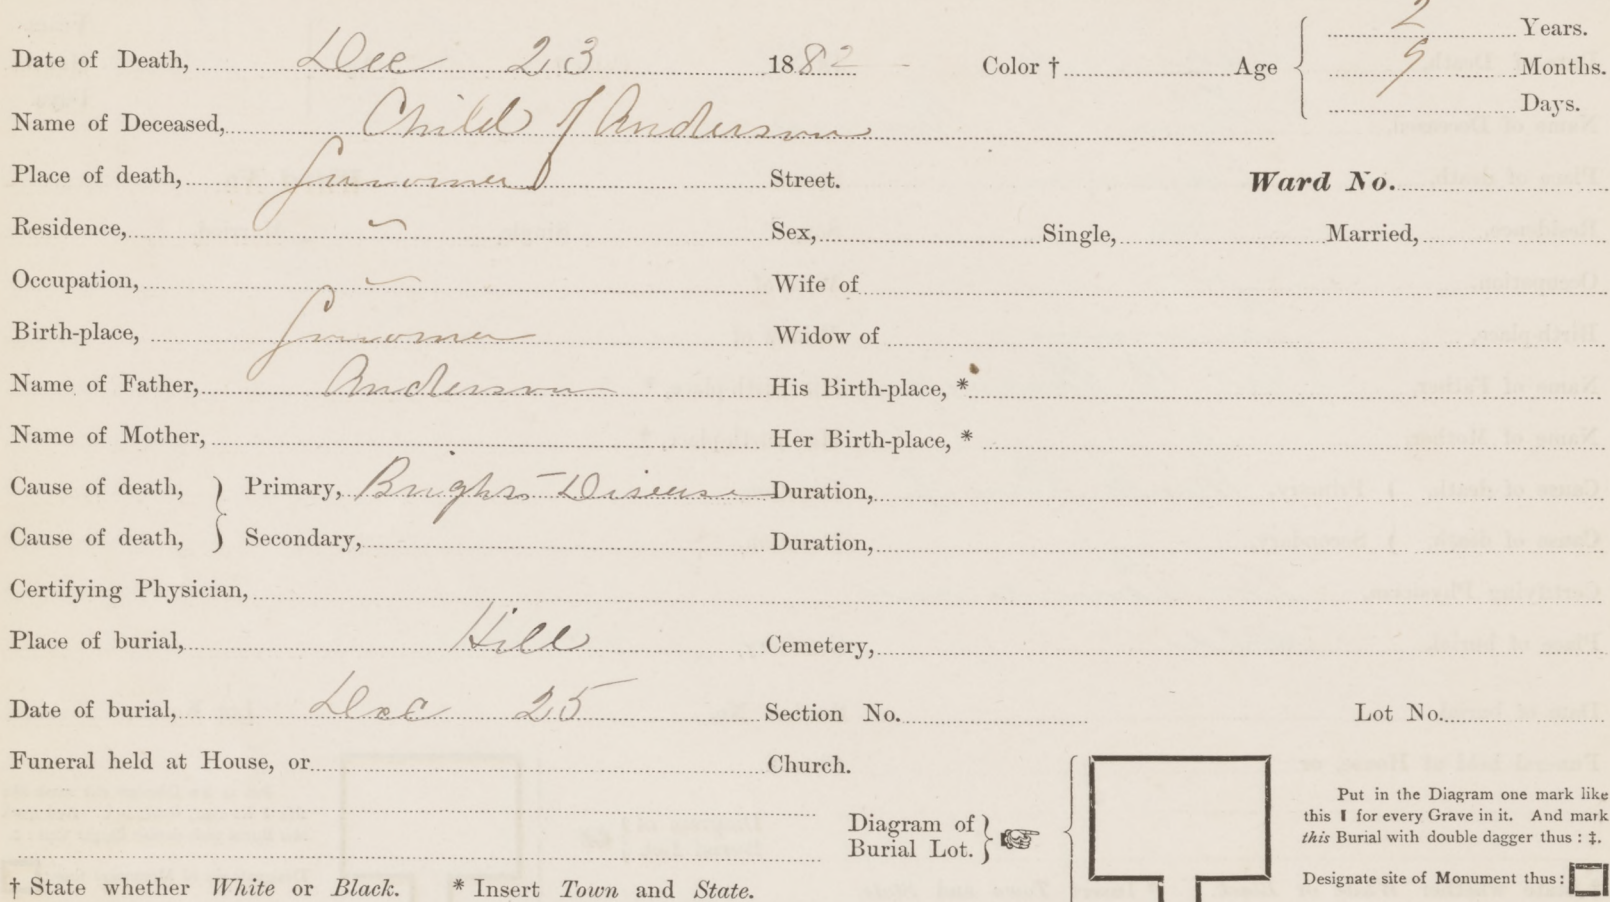 2 Years.
Date of Death, Dec 23 1882 Color † Age 9 Months.
Days.
Name of Deceased, Child of Anderson
Place of death, Street. Ward No.
Residence, " Sex, Single, Married,
Occupation, " Wife of
Birth-place, Widow of
Name of Father, Anderson His Birth-place, *
Name of Mother, Her Birth-place, *
Cause of death, } Primary, Brights Disease Duration,
Cause of death, } Secondary, Duration,
Certifying Physician,
Place of burial, Hill Cemetery,
Date of burial, Dec 25 Section No. Lot No.
Funeral held at House, or Church.
Put in the Diagram one mark like
this I for every Grave in it. And mark
this Burial with double dagger thus : ‡.
Diagram of
Burial Lot.
Designate site of Monument thus :
† State whether White or Black. * Insert Town and State.